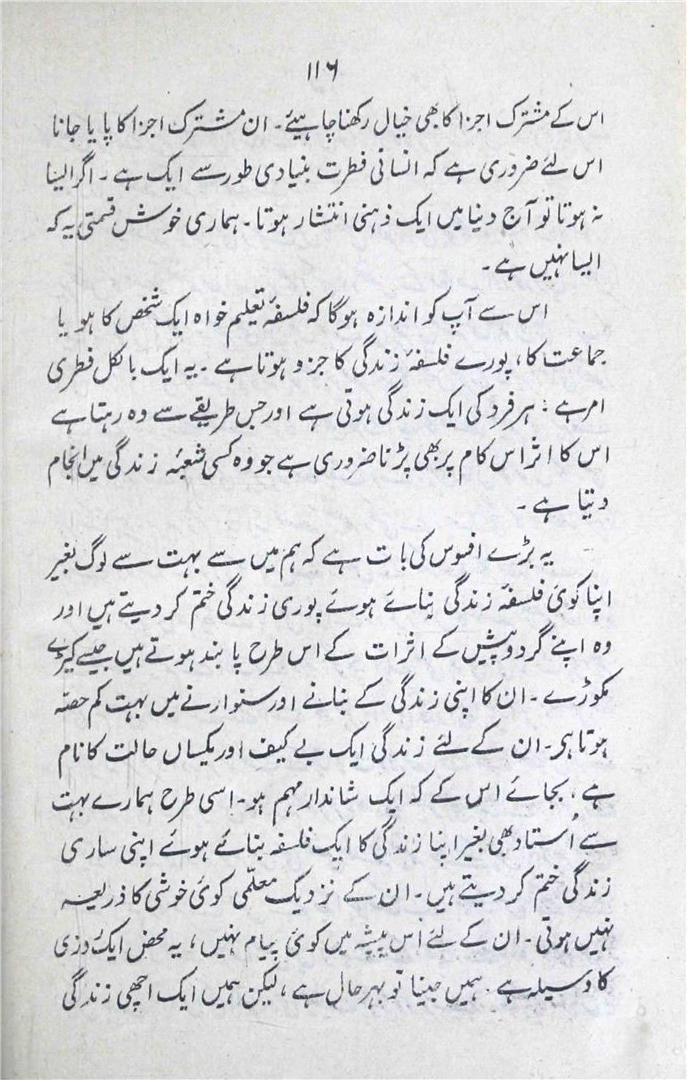 ۱۱۶
اس کے مشترک اجزا کا بھی خیال رکھنا چاہیئے۔ ان مشترک اجزا کا پایا جانا
اس لئے ضروری ہے کہ انسانی فطرت بنیادی طور سے ایک ہے۔ اگر ایسا
نہ ہوتا تو آج دنیا میں ایک ذہنی انتشار ہوتا۔ ہماری خوش قسمتی یہ کہ
ایسا نہیں ہے۔
اس سے آپ کو اندازہ ہوگا کہ فلسفۂ تعلیم خواہ ایک شخص کا ہو یا
جماعت کا، پورے فلسفۂ زندگی کا جزو ہوتا ہے۔ یہ ایک بالکل فطری
امر ہے: ہر فرد کی ایک زندگی ہوتی ہے اور جس طریقے سے وہ رہتا ہے
اس کا اثر اس کام پر بھی پڑنا ضروری ہے جو وہ کسی شعبۂ زندگی میں انجام
دیتا ہے۔
یہ بڑے افسوس کی بات ہے کہ ہم میں سے بہت سے لوگ بغیر
اپنا کوئی فلسفۂ زندگی بنائے ہوئے پوری زندگی ختم کر دیتے ہیں اور
وہ اپنے گرد و پیش کے اثرات کے اس طرح پابند ہوتے ہیں جیسے کیڑے
مکوڑے۔ ان کا اپنی زندگی کے بنانے اور سنوارنے میں بہت کم حصّہ
ہوتا ہی۔ ان کے لئے زندگی ایک بے کیف اور یکساں حالت کا نام
ہے، بجائے اس کے کہ ایک شاندار مہم ہو۔ اسی طرح ہمارے بہت
سے اُستاد بھی بغیر اپنا زندگی کا ایک فلسفہ بنائے ہوئے اپنی ساری
زندگی ختم کر دیتے ہیں۔ ان کے نزدیک معلّمی کوئی خوشی کا ذریعہ
نہیں ہوتی۔ ان کے لئے اس پیشہ میں کوئی پیام نہیں، یہ محض ایک روزی
کا وسیلہ ہے۔ ہمیں جینا تو بہرحال ہے، لیکن ہمیں ایک اچھی زندگی